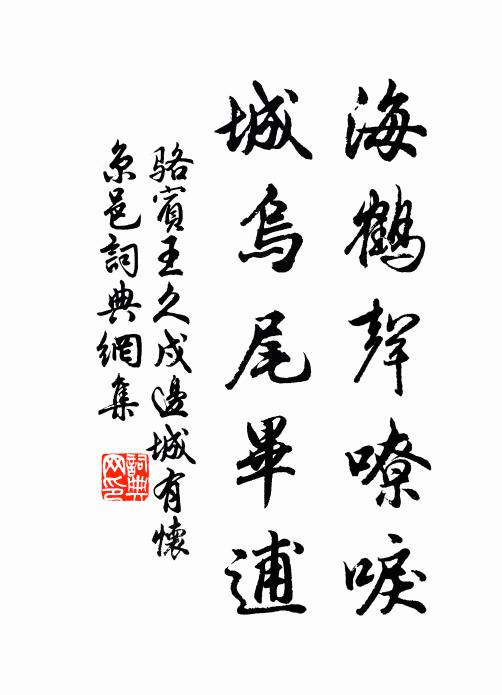 海鶴聲嘹唳
城烏尾畢逋
駱賓王久戍邊城有懷
京邑詞典網集
詞典网印